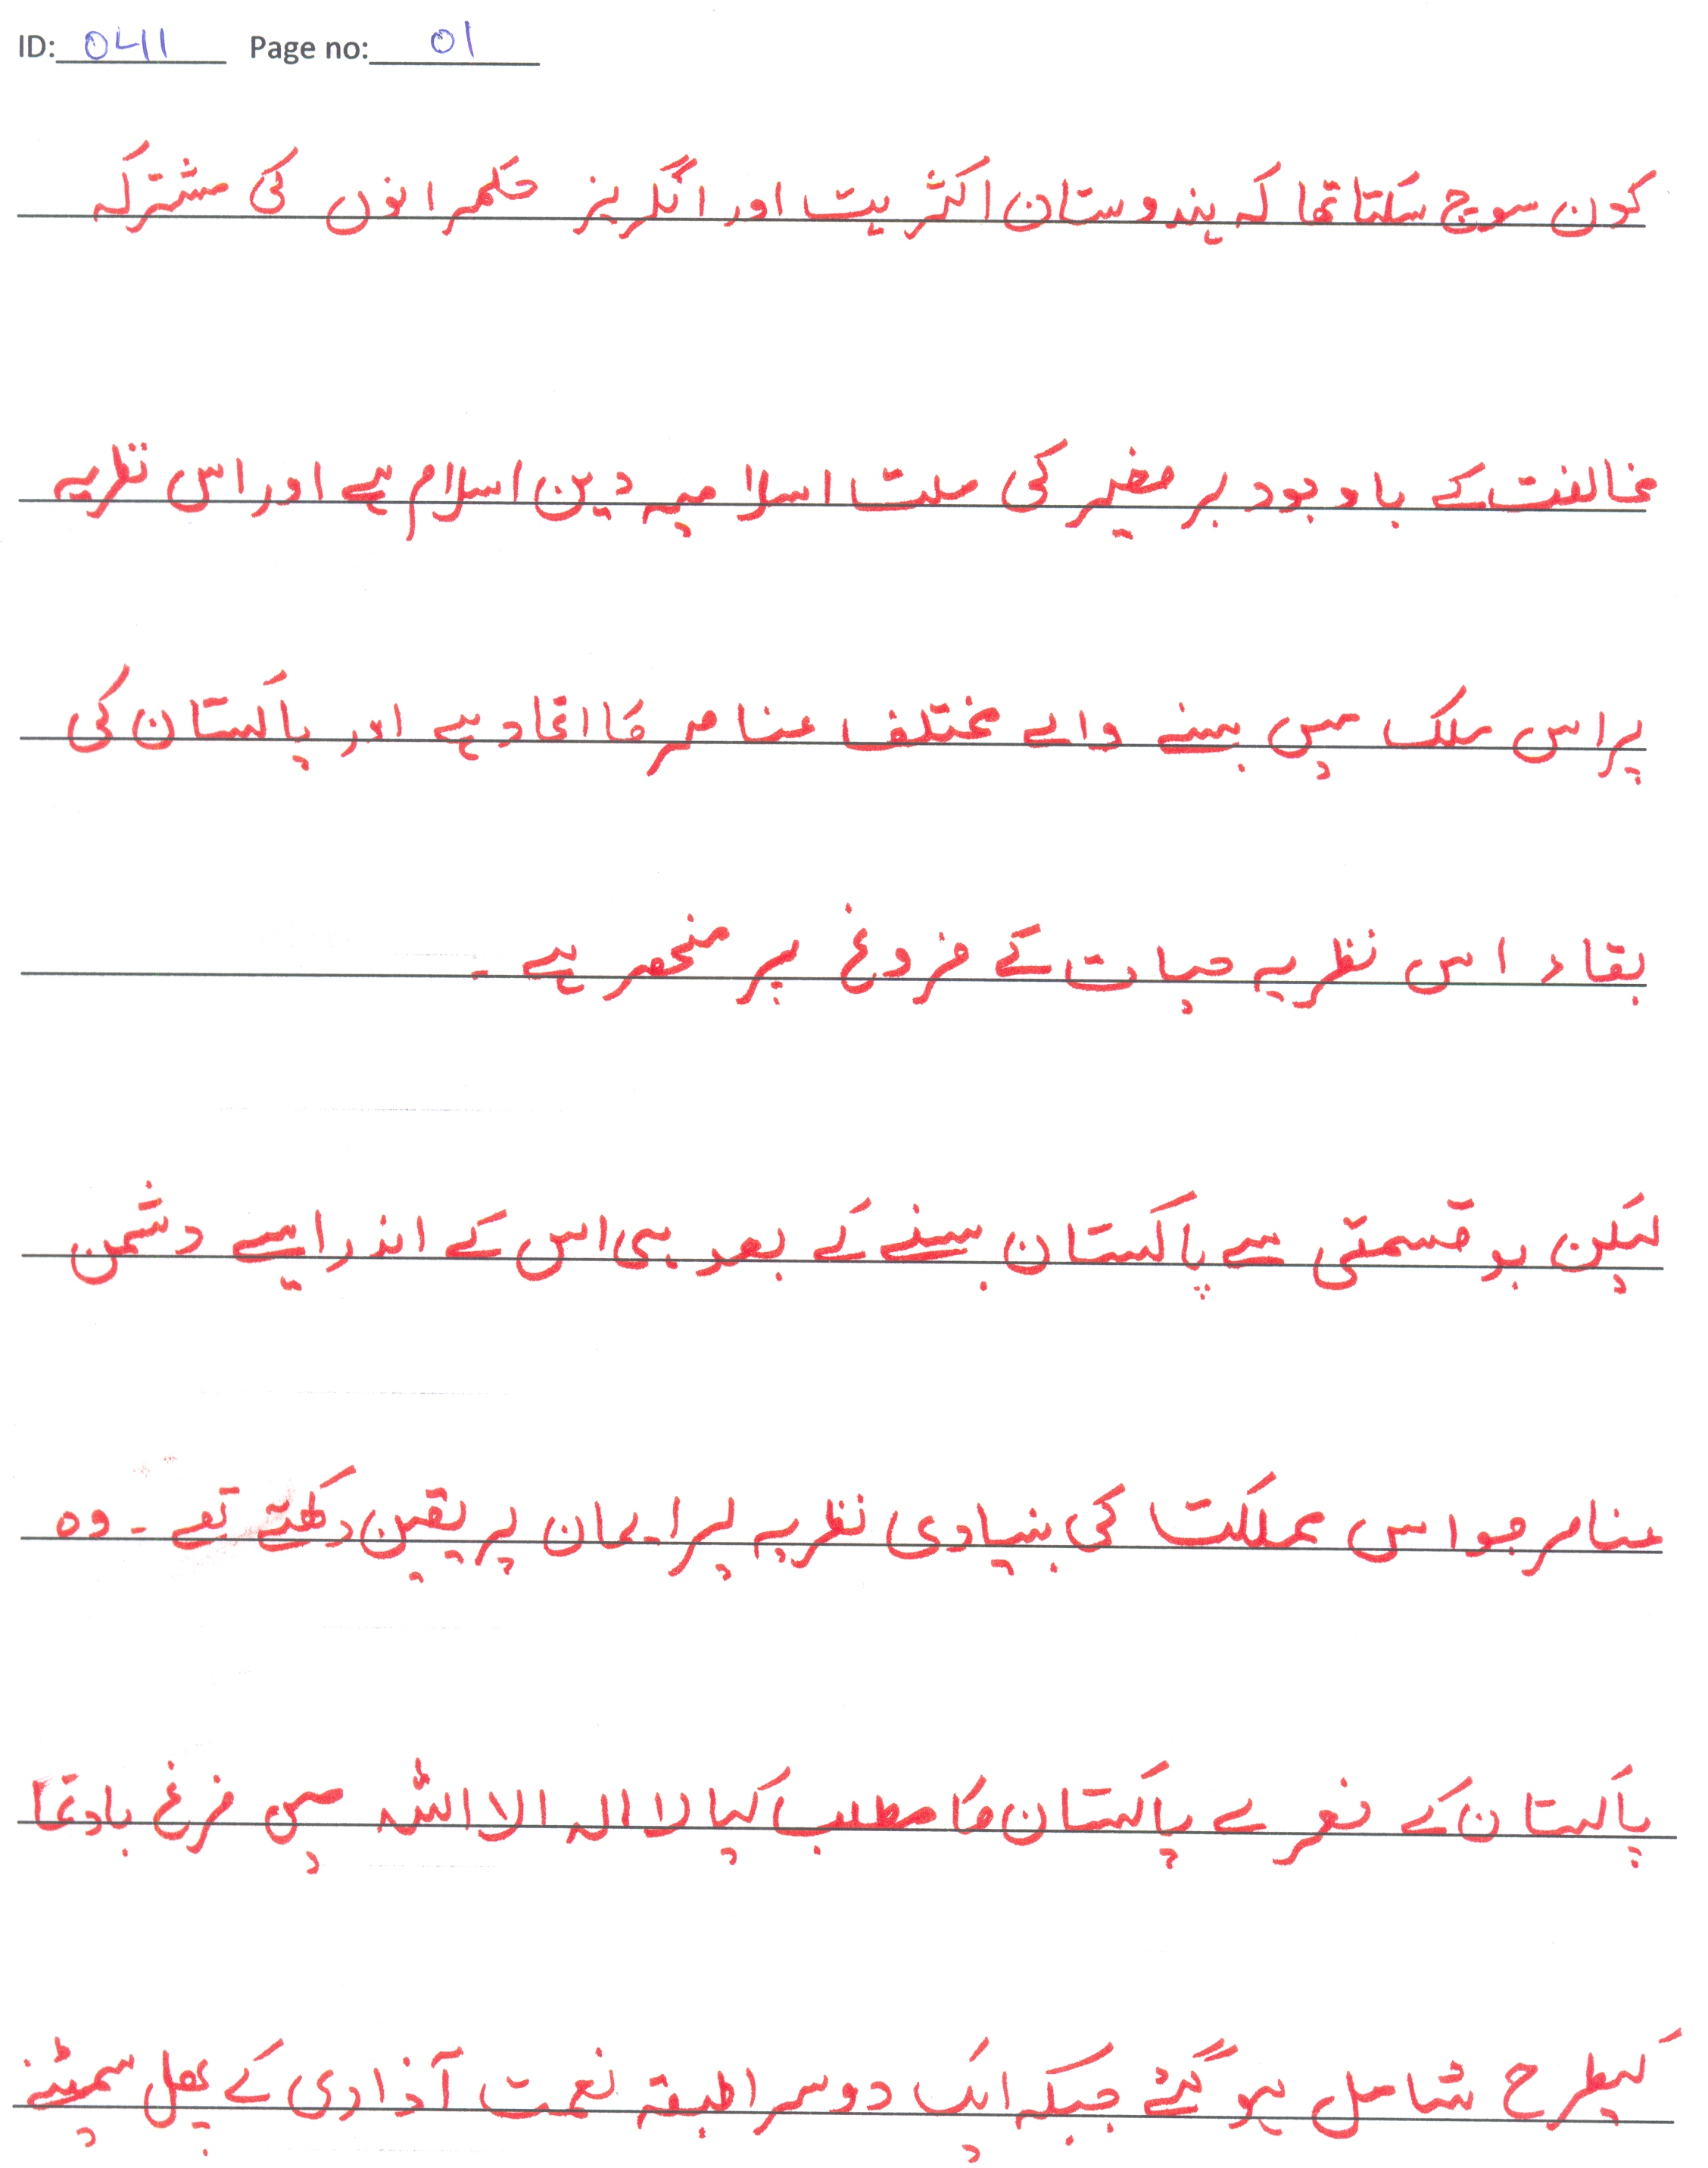 ID: 0411 Page no: 01
کون سوچ سکتا تھا کہ ہندوستان اکثریت اور انگریز حکمرانوں کی مشترکہ
مخالفت کے باوجود برصغیر کی ملت اسلامیہ دین اسلام ہے اور اس نظریہ
پر اس ملک میں بسنے والے مختلف عناصر کا اتحاد ہے اور پاکستان کی
بقاء اس نظریہ حیات کے فروغ پر منحصر ہے ۔
لیکن بدقسمتی سے پاکستان بننے کے بعد ہی اس کے اندر ایسے دشمن
عناصر جو اس مملکت کی بنیادی نظریہ پر ایمان پر یقین رکھتے تھے ۔ وہ
پاکستان کے نعرے پاکستان کا مطلب کیا لا الہ الا اللہ میں فرغ بادنما
کیطرح شامل ہو گئے جبکہ ایک دوسرا طبقہ نعمت آذادی کے پھل سمیٹنے